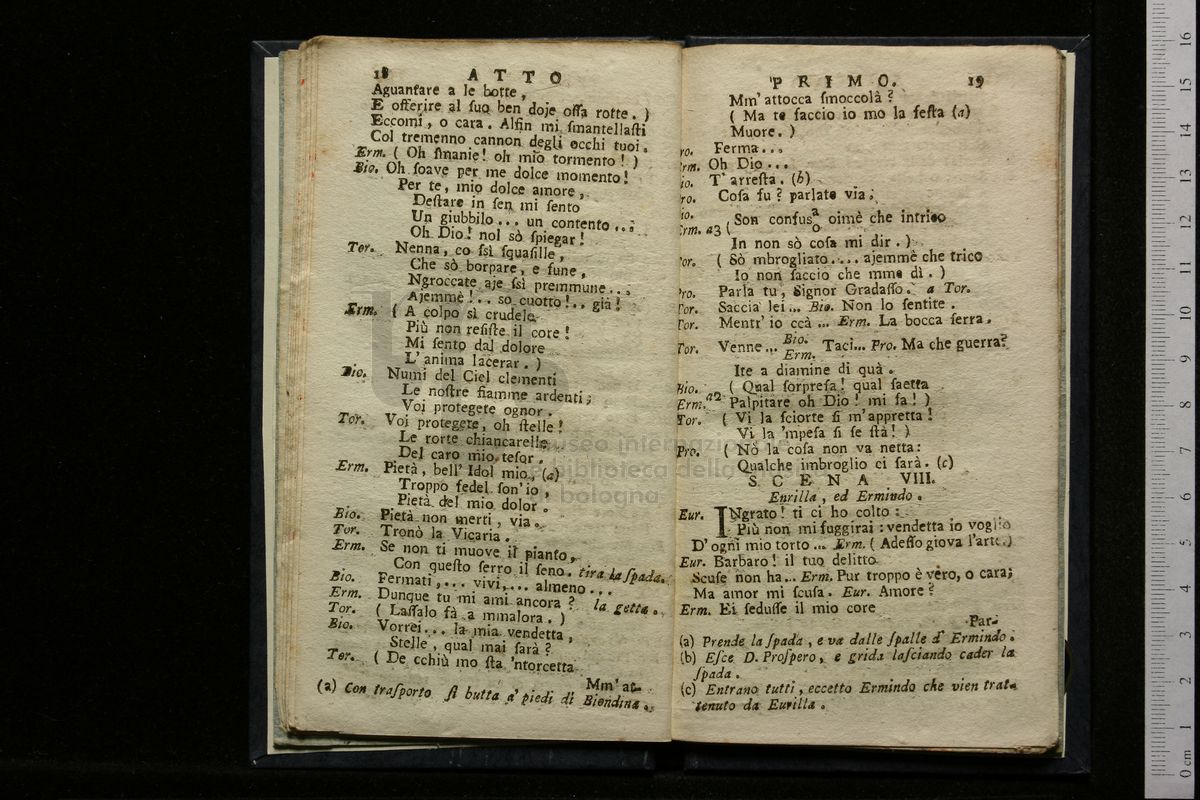 18 ATTO
Aguantare a le botte,
E offerire al ſuo ben doje oſſa rotte. )
Eccomi, o cara. Alfin mi ſmantellaſti
Col tremenno cannon degli occhi tuoi.
Erm. ( Oh ſmanie! oh mio tormento! )
Bio. Oh ſoave per me dolce momento!
Per te, mio dolce amore,
Deſtare in ſen mi ſento
Un giubbilo... un contento...
Oh Dio! nol sò ſpiegar!
Tor. Nenna, co ſsì ſquaſille,
Che sò borpare, e fune,
Ngroccate aje ſsì premmune...
Ajemmè!.. so cuotto!.. già!
Erm. ( A colpo sì crudele
Più non reſiſte il core!
Mi ſento dal dolore
L'anima lacerar. )
Bio. Numi del Ciel clementi
Le noſtre fiamme ardenti;
Voi protegete ognor.
Tor. Voi protegete, oh ſtelle!
Le rorte chiancarelle
Del caro mio teſor.
Erm. Pietà, bell' Idol mio, (a)
Troppo fedel ſon'io,
Pietà del mio dolor.
Bio. Pietà non merti, via.
Tor. Tronò la Vicaria.
Erm. Se non ti muove il pianto,
Con queſto ferro il ſeno. tira la ſpada.
Bio. Fermati,... vivi,... almeno...
Erm. Dunque tu mi ami ancora? la getta.
Tor. ( Laſſalo fà a mmalora. )
Bio. Vorrei... la mia vendetta,
Stelle, qual mai ſarà?
Tor. ( De cchiù mo ſta 'ntorcetta
Mm' at-
(a) Con traſporto ſi butta a' piedi di Biondina.
PRIMO. 19
Mm' attocca ſmoccolà?
( Ma te faccio io mo la feſta (a)
Muore. )
ro. Ferma...
rm. Oh Dio...
io. T' arreſta. (b)
ro. Coſa fu? parlate via;
io.
Erm. a3 ( Son confuſa/o oimè che intrico
In non sò coſa mi dir. )
or. ( Sò mbrogliato.... ajemmè che trico
Io non faccio che mme dì. )
Pro. Parla tu, Signor Gradaſſo. a Tor.
Tor. Saccia lei... Bio. Non lo ſentite.
Tor. Mentr' io ccà... Erm. La bocca ferra.
Tor. Venne... Bio. Erm. Taci... Pro. Ma che guerra?
Ite a diamine di quà.
Bio. ( Qual ſorpreſa! qual ſaetta
Erm. a2 Palpitare oh Dio! mi fa! )
Tor. ( Vi la ſciorte ſi m'appretta!
Vi la 'mpeſa ſi ſe ſtà! )
Pro. ( Nò la coſa non va netta:
Qualche imbroglio ci ſarà. (c)
SCENA VIII.
Eurilla, ed Ermindo.
Eur. INgrato! ti ci ho colto:
Più non mi fuggirai: vendetta io voglio
D'ogni mio torto... Erm. ( Adeſſo giova l'arte.)
Eur. Barbaro! il tuo delitto
Scuſe non ha... Erm. Pur troppo è vero, o cara;
Ma amor mi ſcuſa. Eur. Amore?
Erm. Ei ſeduſſe il mio core
Par-
(a) Prende la ſpada, e va dalle ſpalle d' Ermindo.
(b) Eſce D. Proſpero, e grida laſciando cader la
ſpada.
(c) Entrano tutti, eccetto Ermindo che vien trat-
tenuto da Eurilla.
museo internazionale
e biblioteca della
bologna
0 cm 1 2 3 4 5 6 7 8 9 10 11 12 13 14 15 16